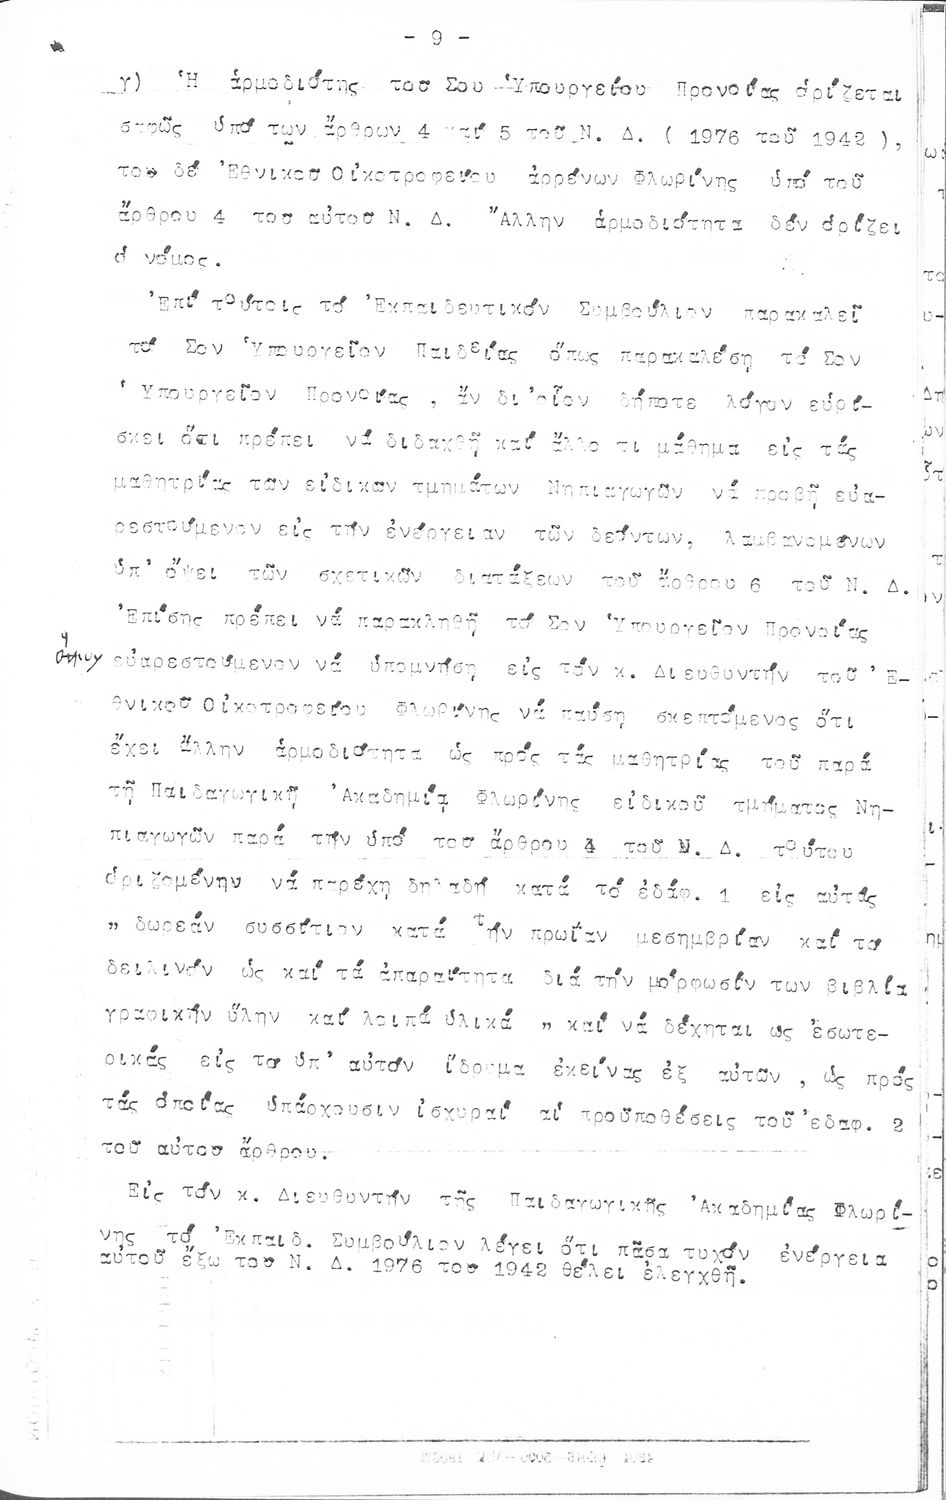 - 9 -
γ) Ἡ ἁρμοδιότης τοῦ Σου Ὑπουργείου Προνοίας ὁρίζεται
σαφῶς ὑπό των ἄρθρων 4 καί 5 τοῦ Ν. Δ. ( 1976 τοῦ 1942 ),
του δέ Ἐθνικοῦ Οἰκοτροφείου ἀρρένων Φλωρίνης ὑπό τοῦ
ἄρθρου 4 του αὐτοῦ Ν. Δ. Ἄλλην ἁρμοδιότητα δέν ὁρίζει
ὁ νόμος.
Ἐπί τούτοις τό Ἐκπαιδευτικόν Συμβούλιον παρακαλεῖ
τό Σον Ὑπουργεῖον Παιδείας ὅπως παρακαλέση τό Σον
Ὑπουργεῖον Προνοίας , ἄν δι' οἷον δήποτε λόγον εὑρί-
σκει ὅτι πρέπει νά διδαχθῆ καί ἄλλο τι μάθημα εἰς τάς
μαθητρίας των εἰδικων τμημάτων Νηπιαγωγῶν νά προβῆ εὐα-
ρεστούμενον εἰς τήν ἐνέργειαν τῶν δεόντων, λαμβανομένων
ὑπ' ὄψει τῶν σχετικῶν διατάξεων τοῦ ἄρθρου 6 τοῦ Ν. Δ.
Ἐπίσης πρέπει νά παρακληθῆ τό Σον Ὑπουργεῖον Προνοίας
εὐαρεστούμενον νά ὑπομνήση εἰς τόν κ. Διευθυντήν τοῦ Ἐ-
θνικοῦ Οἰκοτροφείου Φλωρίνης νά παύση σκεπτόμενος ὅτι
ἔχει ἄλλην ἁρμοδιότητα ὡς πρός τάς μαθητρίας τοῦ παρά
τῆ Παιδαγωγικῆ Ἀκαδημίᾳ Φλωρίνης εἰδικοῦ τμήματος Νη-
πιαγωγῶν παρά τήν ὑπό του ἄρθρου 4 τοῦ Ν. Δ. τούτου
ὁριζομένην νά παρέχη δηλαδή κατά τό ἐδάφ. 1 εἰς αὐτάς
" δωρεάν συσσίτιον κατά τήν πρωΐαν μεσημβρίαν καί το
δειλινόν ὡς καί τά ἀπαραίτητα διά τήν μόρφωσίν των βιβλία
γραφικήν ὕλην καί λοιπά ὑλικά " καί νά δέχηται ως ἐσωτε-
ρικάς εἰς το ὑπ' αὐτόν ἵδρυμα ἐκείνας ἐξ αὐτῶν , ὡς πρός
τάς ὁποίας ὑπάρχουσιν ἰσχυραί αἱ προϋποθέσεις τοῦ ἐδαφ. 2
τοῦ αὐτου ἄρθρου.
Εἰς τόν κ. Διευθυντήν τῆς Παιδαγωγικῆς Ἀκαδημίας Φλωρί-
νης τό Ἐκπαιδ. Συμβούλιον λέγει ὅτι πᾶσα τυχόν ἐνέργεια
αὐτοῦ ἔξω του Ν. Δ. 1976 του 1942 θέλει ἐλεγχθῆ.